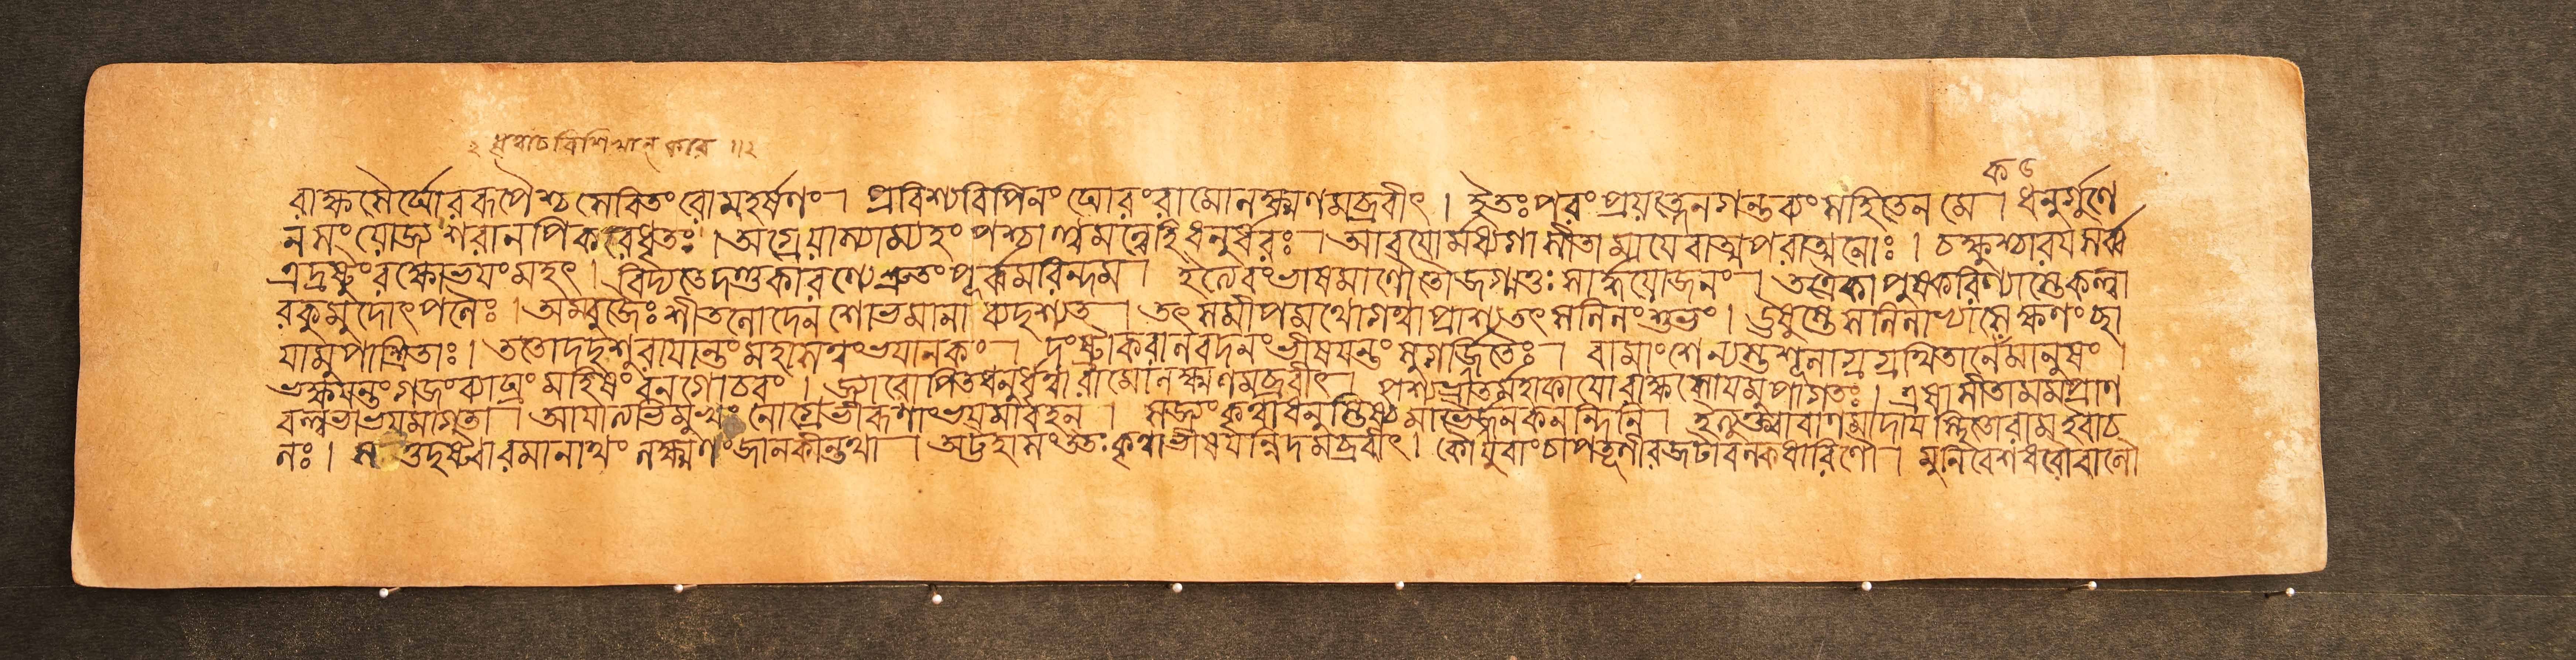 ২ ধৃত্বা চ বিশিখান্ করে ॥ ২
ক ৫
রাক্ষসৈর্ঘোররূপৈশ্চ সেবিতং রোমহর্ষণং । প্রবিশ্য বিপিনং ঘোরং রামো লক্ষ্মণমব্রবীৎ । ইতঃ পরং প্রযত্নেন গন্তব্যং সহিতেন মে । ধনুর্গুণে
ন সংযোজ্য শরানপি করে ধৃতঃ । অগ্রে যাস্যাম্যহং পশ্চাত্ত্বমন্বেহি ধনুর্ধরঃ । আবয়োর্মধ্যগা সীতা মাযেবাত্মপরাত্মনোঃ । চক্ষুশ্চারয সর্ব্ব
ত্র দৃষ্টং রক্ষোভয়ং মহৎ । বিদ্যতে দণ্ডকারণ্যে শ্রুতং পূর্ব্বমরিন্দম । ইত্যেবং ভাষমাণৌ তৌ জগ্মতুঃ সার্দ্ধযোজনং । তত্রৈকা পুষ্করিণ্যাস্তে কল্হা
রকুমুদোৎপলৈঃ । অম্বুজৈঃ শীতলোদেন শোভমানা ব্যদৃশ্যত । তৎসমীপমথো গত্বা প্রাশ্য তৎ সলিলং শুভং । ঊষুস্তে সলিলাভ্যাসে ক্ষণং ছা
যামুপাশ্রিতাঃ । ততো দদৃশুরাযান্তং মহাসত্ত্বং ভযানকং । দংষ্ট্রাকরালবদনং ভীষযন্তং সুগর্জ্জিতৈঃ । বামাংশে ন্যস্তশূলাগ্রগ্রথিতানেকমানুষং ।
ভক্ষযন্তং গজং ব্যাঘ্রং মহিষং বনগোচরং । জ্যারোপিতং ধনুর্ধৃত্বা রামো লক্ষ্মণমব্রবীৎ । পশ্য ভ্রাতর্মহাকাযো রাক্ষসোযমুপাগতঃ । এষা সীতা মম প্রাণ
বল্লভা ভয়মাগতা । আযাত্যভিমুখং নোগ্রে ভীরূণাং ভয়মাবহন্ । সজ্যং কৃত্বা ধনুস্তিষ্ঠ মা ভৈর্জনকনন্দিনি । ইত্যুক্ত্বা বাণমাদায স্থিতো রাম ইবাচ
লঃ । স তু দৃষ্ট্বা রমানাথং লক্ষ্মণং জানকীন্তথা । অট্টহাসং ততঃ কৃত্বা ভীষযন্নিদমব্রবীৎ । কৌ যুবাং চাপতূণীরজটাবল্কধারিণৌ । মুনিবেশধরৌ বালৌ